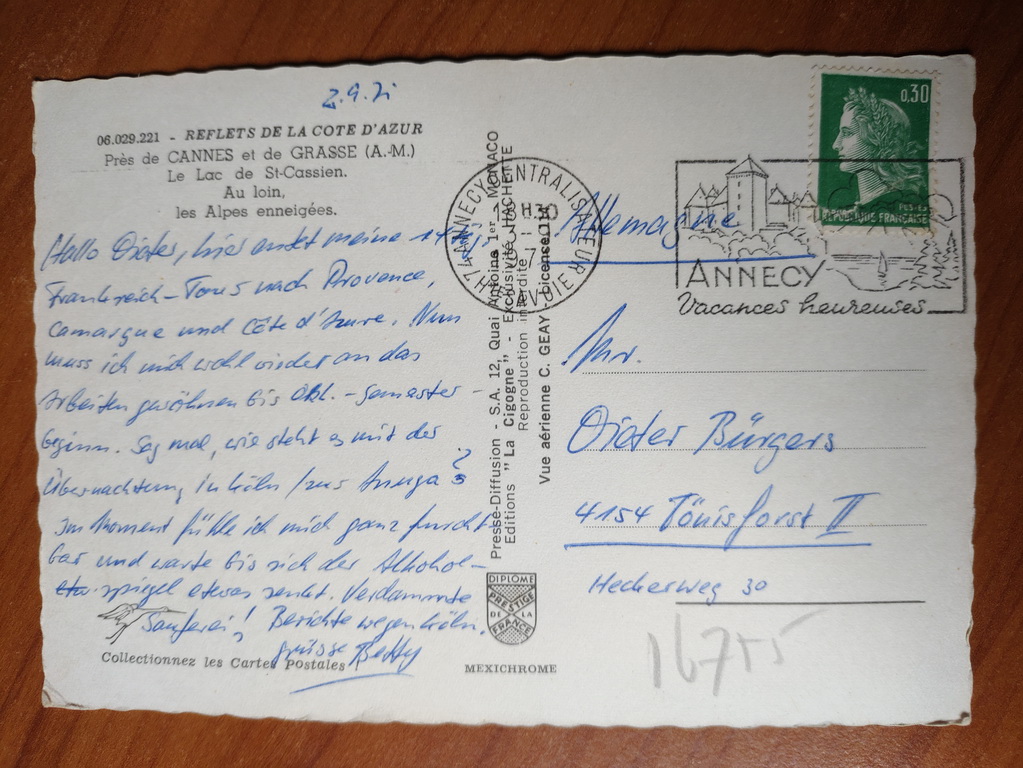 2.9.71
06.029.221 - REFLETS DE LA COTE D'AZUR
Près de CANNES et de GRASSE (A.-M.)
Le Lac de St-Cassien.
Au loin,
les Alpes enneigées.
Hallo Dieter, hier endet meine
Frankreich-Tour nach Provence,
Camargue und Côte d'Azure. Nun
muss ich mich wohl wieder an das
Arbeiten gewöhnen bis Okt. - Semester-
beginn. Sag mal, wie steht es mit der
Übernachtung in Köln /zur Anuga?
Im Moment fühle ich mich ganz furcht
bar und warte bis sich der Alkohol-
spiegel etwas senkt. Verdammte
Sauferei! Berichte wegen Köln.
grüsse Betty
Collectionnez les Cartes Postales !
Presse-Diffusion - S.A. 12, Quai Antoine 1er - MONACO
Editions "La Cigogne" - Exclusivité HACHETTE
Reproduction interdite
Vue aérienne C. GEAY - Licence
DIPLOME
PRESTIGE
DE LA
FRANCE
MEXICHROME
74 ANNECY CENTRALISATEUR
HTE SAVOIE
0,30
REPUBLIQUE FRANÇAISE
ANNECY
Vacances heureuses
Allemagne
Hr.
Dieter Bürgers
4154 Tönisforst II
Heckerweg 30
16755